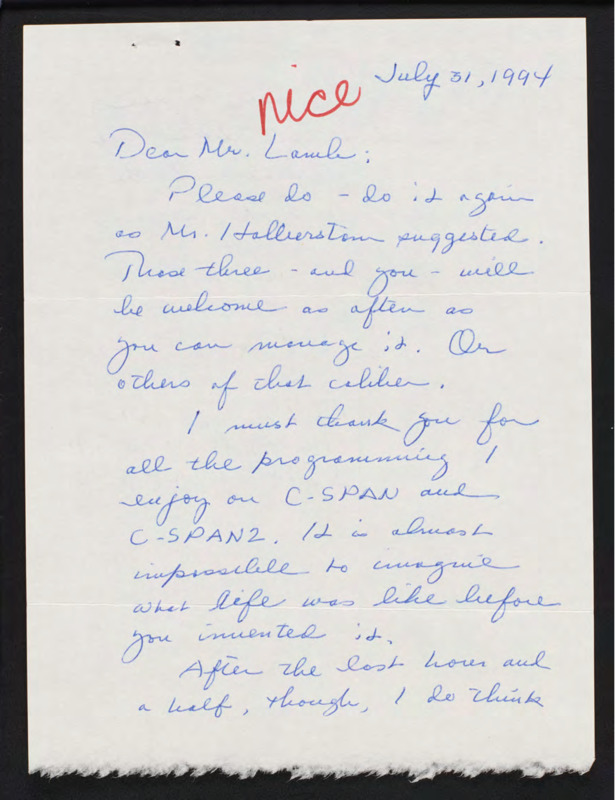 July 31, 1994
nice
Dear Mr. Lamb:
Please do - do it again
as Mr. Halberstam suggested.
Those three - and you - will
be welcome as often as
you can manage it. Or
others of that caliber.
I must thank you for
all the programming I
enjoy on C-SPAN and
C-SPAN2. It is almost
impossible to imagine
what life was like before
you invented it.
After the last hour and
a half, though, I do think